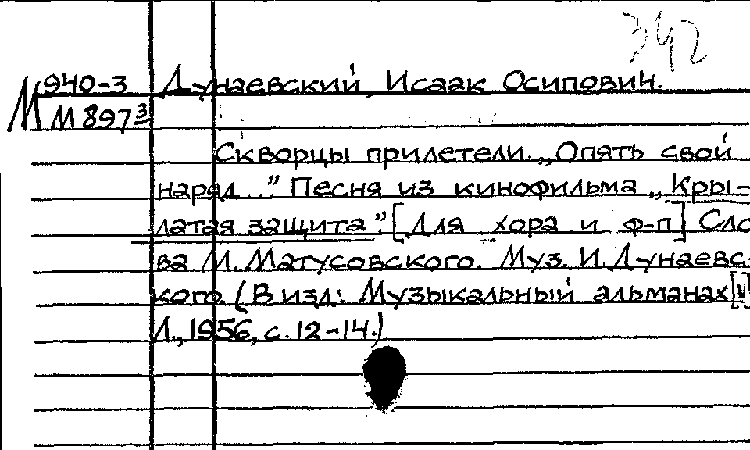 342
М 940-3 Дунаевский, Исаак Осипович.
М 897³
Скворцы прилетели. „Опять свой
наряд..." Песня из кинофильма „Кры-
латая защита". [Для хора и ф-п] Сло
ва М. Матусовского. Муз. И. Дунаевс-
кого. (В изд: Музыкальный альманах
Л., 1956, с. 12-14.)